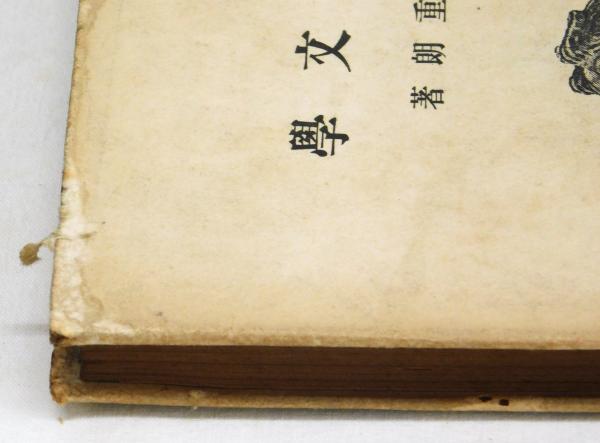 文學
重朗著